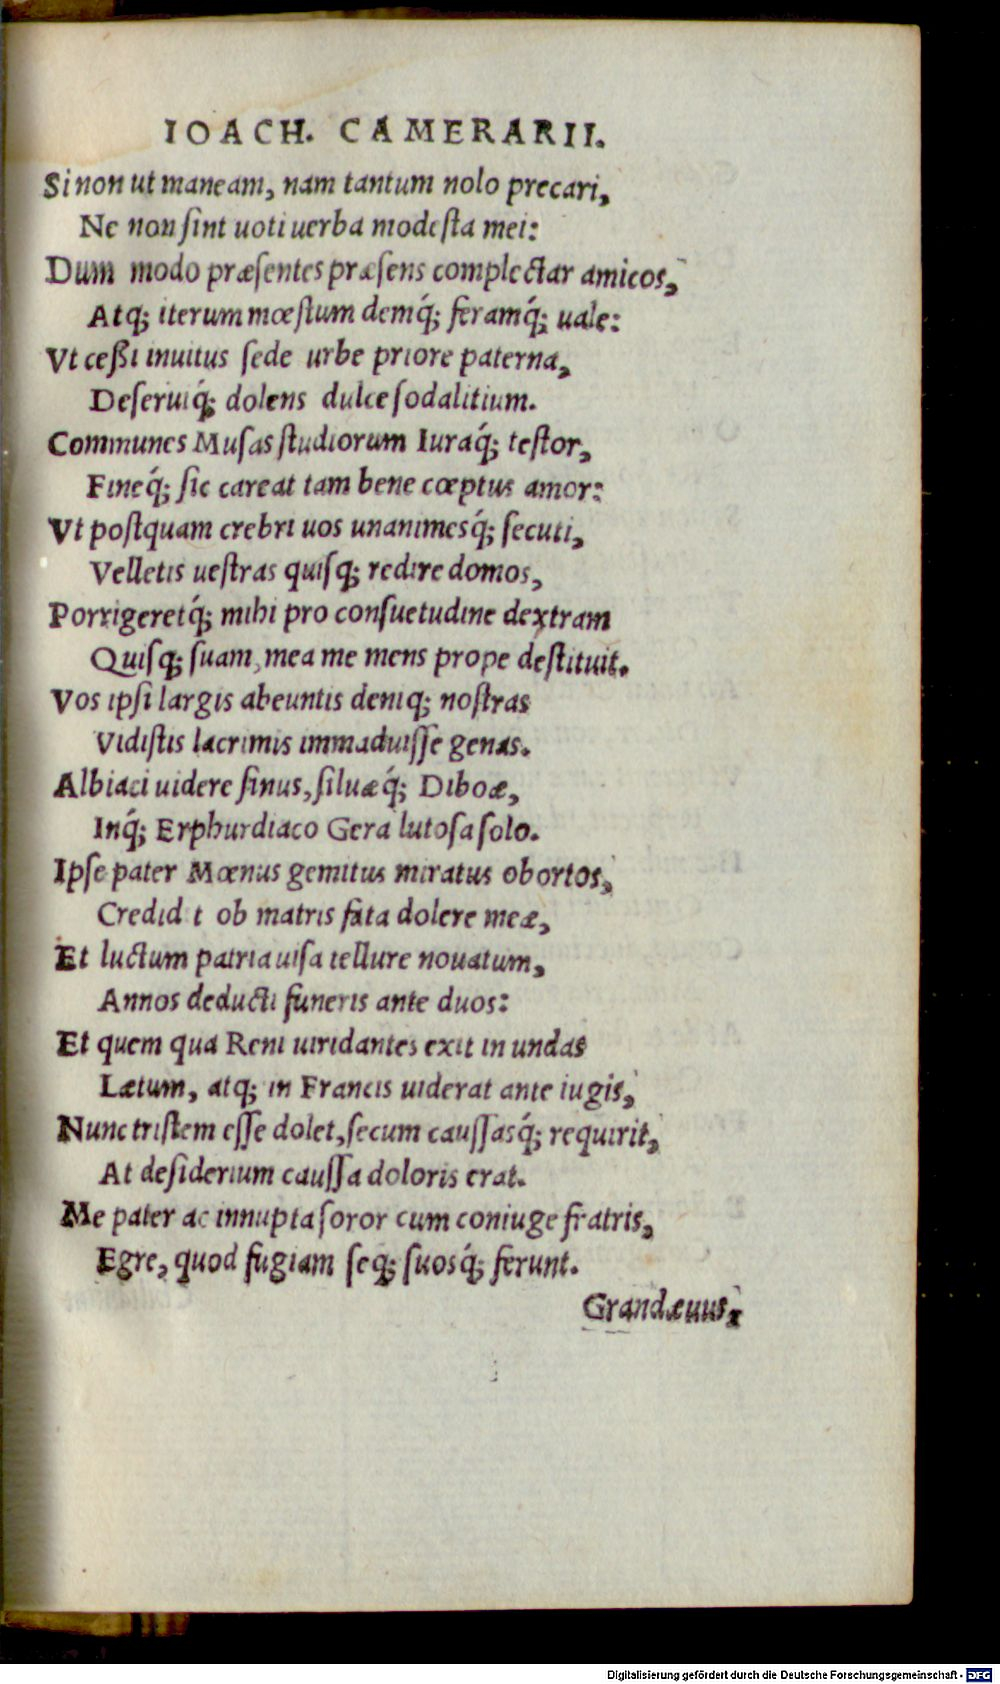 IOACH. CAMERARII.
Si non ut maneam, nam tantum nolo precari,
Ne non ſint uoti uerba modeſta mei:
Dum modo præſentes præſens complectar amicos,
Atq; iterum mœſtum demq́; feramq́; uale:
Vt ceßi inuitus ſede urbe priore paterna,
Deſeruiq́; dolens dulce ſodalitium.
Communes Muſas ſtudiorum Iuraq́; teſtor,
Fineq́; ſic careat tam bene cœptus amor:
Vt poſtquam crebri uos unanimesq́; ſecuti,
Velletis ueſtras quiſq; redire domos,
Porrigeretq́; mihi pro conſuetudine dextram
Quiſq; ſuam, mea me mens prope deſtituit.
Vos ipſi largis abeuntis deniq; noſtras
Vidiſtis lacrimis immaduiſſe genas.
Albiaci uidere ſinus, ſiluæq́; Diboæ,
Inq́; Erphurdiaco Gera lutoſa ſolo.
Ipſe pater Mœnus gemitus miratus obortos,
Credid t ob matris fata dolere meæ,
Et luctum patria uiſa tellure nouatum,
Annos deducti funeris ante duos:
Et quem qua Reni uiridantes exit in undas
Lætum, atq; in Francis uiderat ante iugis,
Nunc triſtem eſſe dolet, ſecum cauſſasq́; requirit,
At deſiderium cauſſa doloris erat.
Me pater ac innupta ſoror cum coniuge fratris,
Egre, quod fugiam ſeq; ſuosq́; ferunt.
Grandæuus,
Digitalisierung gefördert durch die Deutsche Forschungsgemeinschaft - DFG